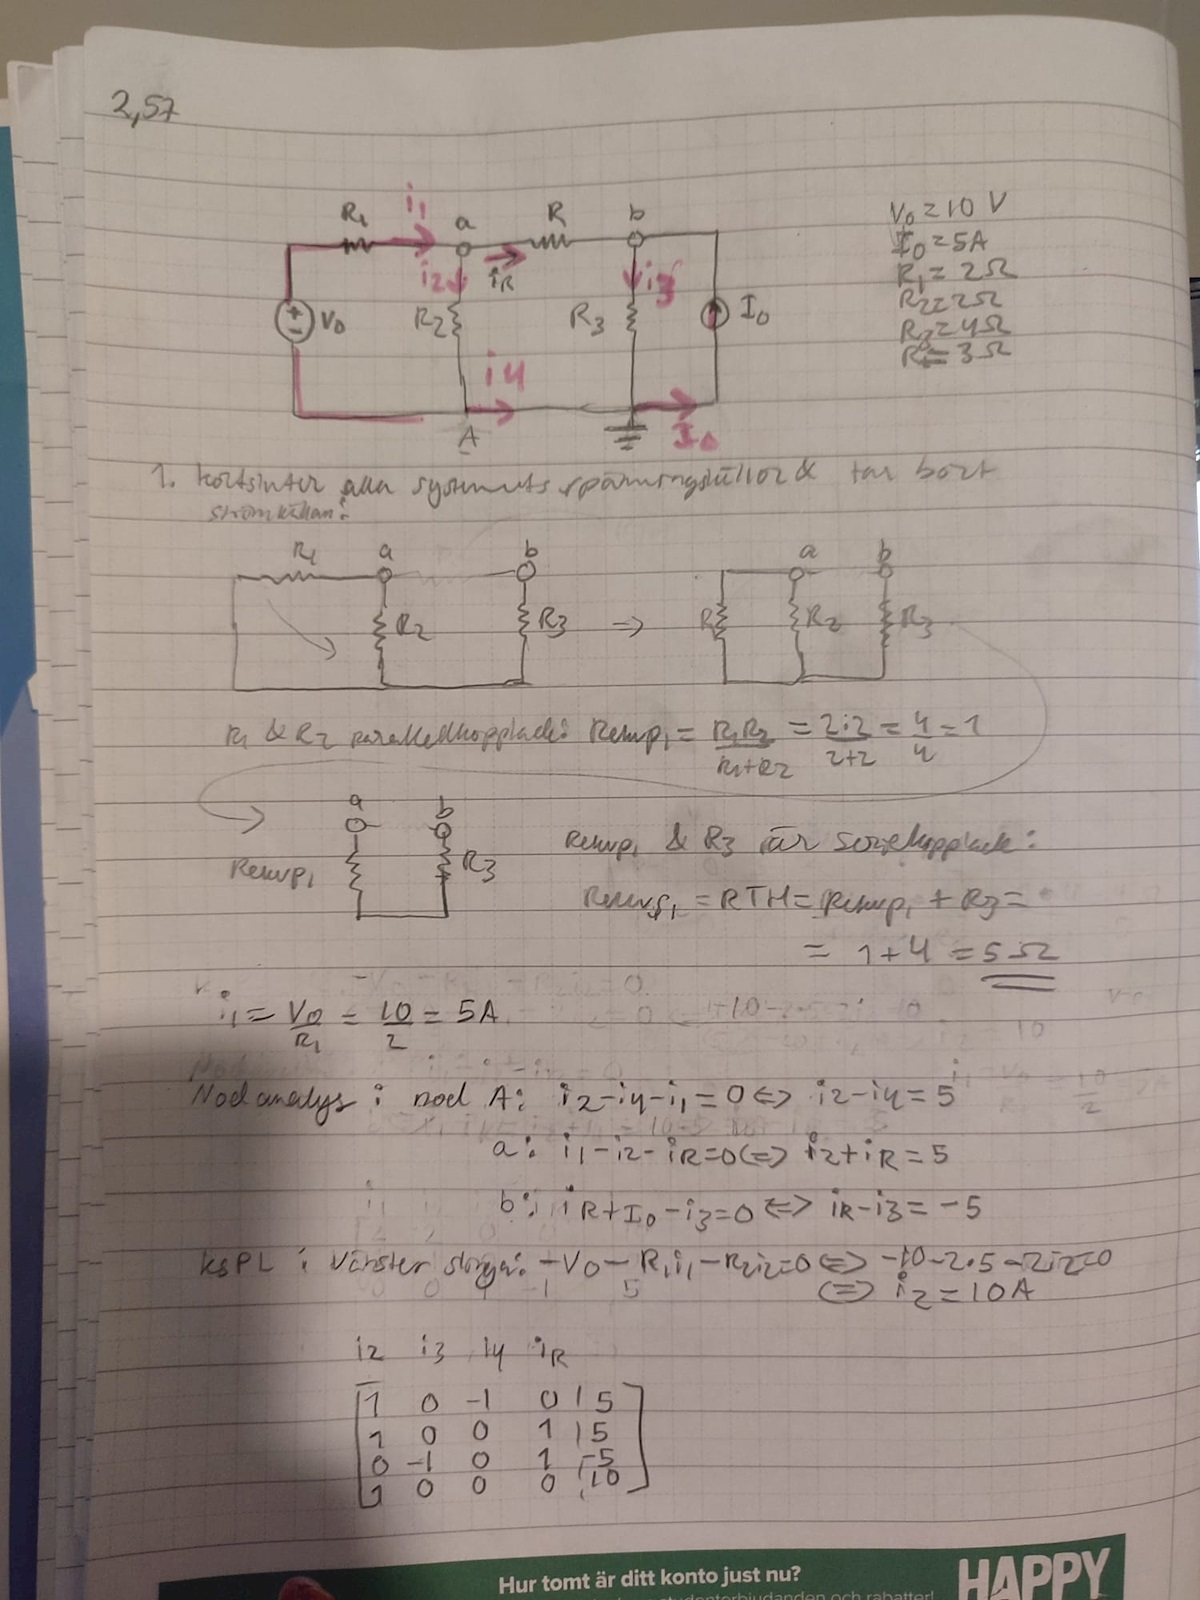 2,57
R1 i1 a R b
V0 = 10 V
I0 = 5A
R1 = 2Ω
R2 = 2Ω
R3 = 4Ω
R = 3Ω
i2 iR i3
V0 R2 R3 I0
i4
A I0
1. kortsluter alla systemets spänningskällor & tar bort
strömkällan:
R1 a b a b
R2 R3 => R R2 R3
R1 & R2 parallellkopplade: Rekvp1 = R1R2/R1+R2 = 2·2/2+2 = 4/4 = 1
a b
Rekvp1 & R3 är seriekopplade:
Rekvp1 R3
= RTH = Rekvp1 + R3 =
= 1+4 = 5Ω
i1 = V0/R1 = 10/2 = 5A
Nodanalys i nod A: i2-i4-i1=0 <=> i2-i4=5
a: i1-i2-iR=0 <=> i2+iR=5
b: iR+I0-i3=0 <=> iR-i3=-5
KSPL i vänster slinga: -V0-R1i1-R2i2=0 <=> -10-2·5-2i2=0
<=> i2=10A
i2 i3 i4 iR
1 0 -1 0 | 5
1 0 0 1 | 5
0 -1 0 1 | -5
1 0 0 0 | 10
Hur tomt är ditt konto just nu?
HAPPY
studenterbjudanden och rabatter!